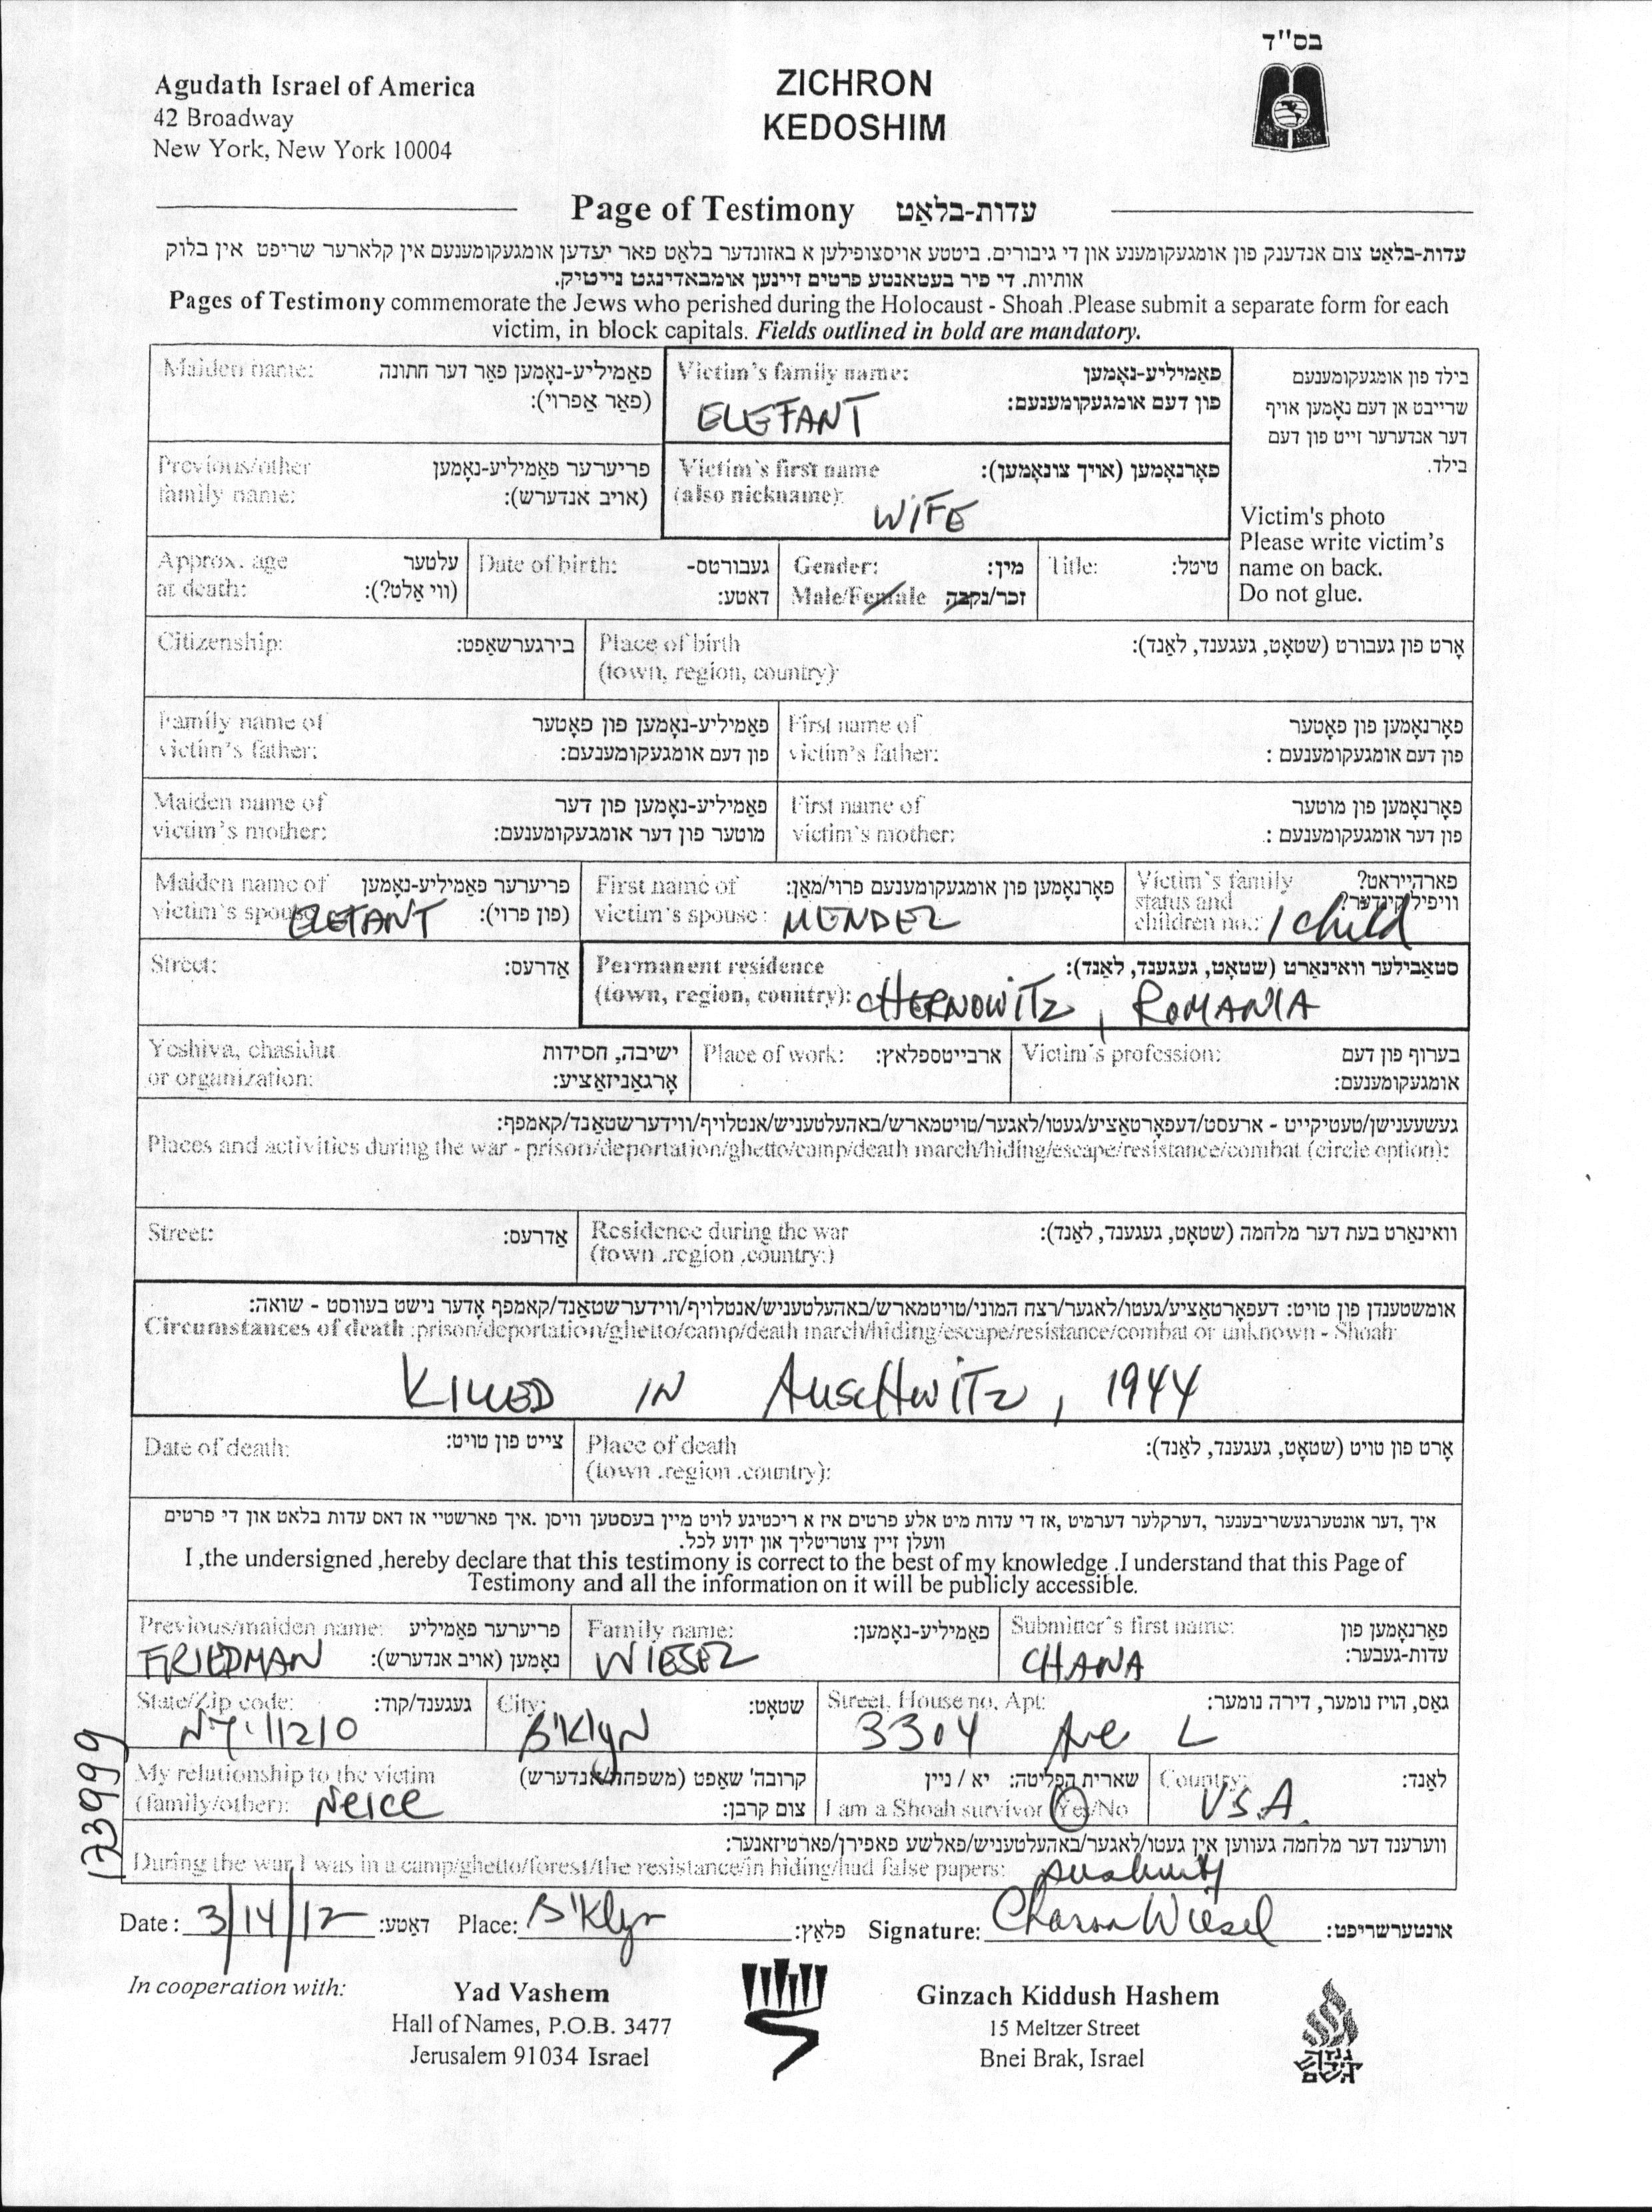 בס"ד
Agudath Israel of America
42 Broadway
New York, New York 10004
ZICHRON
KEDOSHIM
Page of Testimony עדות-בלאַט
עדות-בלאַט צום אנדענק פון אומגעקומענע און די גיבורים. ביטטע אויסצופילען א באזונדער בלאַט פאר יעדען אומגעקומענעם אין קלארער שריפט אין בלוק
אותיות. די פיר בעטאָנטע פרטים זיינען אומבאדינגט נייטיק.
Pages of Testimony commemorate the Jews who perished during the Holocaust - Shoah .Please submit a separate form for each
victim, in block capitals. Fields outlined in bold are mandatory.
Maiden name: פאַמיליע-נאָמען פאַר דער חתונה
(פאַר אַפרוי):
Victim's family name: פאַמיליע-נאָמען
פון דעם אומגעקומענעם:
ELEFANT
בילד פון אומגעקומענעם
שרייבט אן דעם נאָמען אויף
דער אנדערער זייט פון דעם
בילד.
Previous/other פריערער פאַמיליע-נאָמען
family name: (אויב אנדערש):
Victim's first name פאָרנאָמען (אויך צונאָמען):
(also nickname):
WIFE
Victim's photo
Please write victim's
name on back.
Do not glue.
Approx. age עלטער
at death: (ווי אַלט?):
Date of birth: געבורטס-
דאַטע:
Gender: מין:
Male/Female זכר/נקבה
Title: טיטל:
Citizenship: בירגערשאַפט:
Place of birth אָרט פון געבורט (שטאָט, געגענד, לאַנד):
(town, region, country):
Family name of פאַמיליע-נאָמען פון פאָטער
victim's father: פון דעם אומגעקומענעם:
First name of פאָרנאָמען פון פאָטער
victim's father: פון דעם אומגעקומענעם :
Maiden name of פאַמיליע-נאָמען פון דער
victim's mother: מוטער פון דער אומגעקומענעם:
First name of פאָרנאָמען פון מוטער
victim's mother: פון דער אומגעקומענעם :
Maiden name of פריערער פאַמיליע-נאָמען
victim's spouse ELEFANT (פון פרוי):
First name of פאָרנאָמען פון אומגעקומענעם פרוי/מאַן:
victim's spouse : MENDEL
Victim's family פארהייראט?
status and וויפיל קינדער?
children no.: 1 child
Street: אַדרעס:
Permanent residence סטאַבילער וואינאָרט (שטאָט, געגענד, לאַנד):
(town, region, country): CHERNOWITZ, ROMANIA
Yeshiva, chasidut ישיבה, חסידות
or organization: אָרגאַניזאַציע:
Place of work: ארבייטספלאץ:
Victim's profession: בערוף פון דעם
אומגעקומענעם:
געשעענישן/טעטיקייט - ארעסט/דעפאָרטאַציע/געטו/לאגער/טויטמארש/באהעלטעניש/אנטלויף/ווידערשטאַנד/קאמפף:
Places and activities during the war - prison/deportation/ghetto/camp/death march/hiding/escape/resistance/combat (circle option):
Street: אַדרעס:
Residence during the war וואינאָרט בעת דער מלחמה (שטאָט, געגענד, לאַנד):
(town .region .country:)
אומשטענדן פון טויט: דעפאָרטאַציע/געטו/לאגער/רצח המוני/טויטמארש/באהעלטעניש/אנטלויף/ווידערשטאַנד/קאמפף אָדער נישט בעוווסט - שואה:
Circumstances of death :prison/deportation/ghetto/camp/death march/hiding/escape/resistance/combat or unknown - Shoah:
KILLED IN AUSCHWITZ, 1944
Date of death: צייט פון טויט:
Place of death אָרט פון טויט (שטאָט, געגענד, לאַנד):
(town .region .country):
איך ,דער אונטערגעשריבענער ,דערקלער דערמיט ,אז די עדות מיט אלע פרטים איז א ריכטיגע לויט מיין בעסטען וויסן .איך פארשטיי אז דאס עדות בלאט און די פרטים
וועלן זיין צוטריטליך און ידוע לכל.
I ,the undersigned ,hereby declare that this testimony is correct to the best of my knowledge .I understand that this Page of
Testimony and all the information on it will be publicly accessible.
Previous/maiden name: פריערער פאַמיליע
FRIEDMAN נאָמען (אויב אנדערש):
Family name: פאַמיליע-נאָמען:
WIESEL
Submitter's first name: פאַרנאָמען פון
עדות-געבער:
CHANA
State/Zip code: געגענד/קוד:
NY 11210
City: שטאָט:
B'Klyn
Street, House no, Apt: גאַס, הויז נומער, דירה נומער:
3304 Ave L
My relationship to the victim קרובה' שאַפט (משפחה/אנדערש)
(family/other): Neice צום קרבן:
שארית הפליטה: יא / ניין
I am a Shoah survivor Yes/No
Country: לאַנד:
USA.
ווערענד דער מלחמה געווען אין געטו/לאגער/באהעלטעניש/פאלשע פאפירן/פארטיזאנער:
During the war I was in a camp/ghetto/forest/the resistance/in hiding/had false papers: Aushwitz
Date : 3/14/12 דאַטע: Place: B'Klyn פלאַץ: Signature: Chana Wiesel אונטערשריפט:
173999
In cooperation with:
Yad Vashem
Hall of Names, P.O.B. 3477
Jerusalem 91034 Israel
Ginzach Kiddush Hashem
15 Meltzer Street
Bnei Brak, Israel
גנזך
קידוש
השם